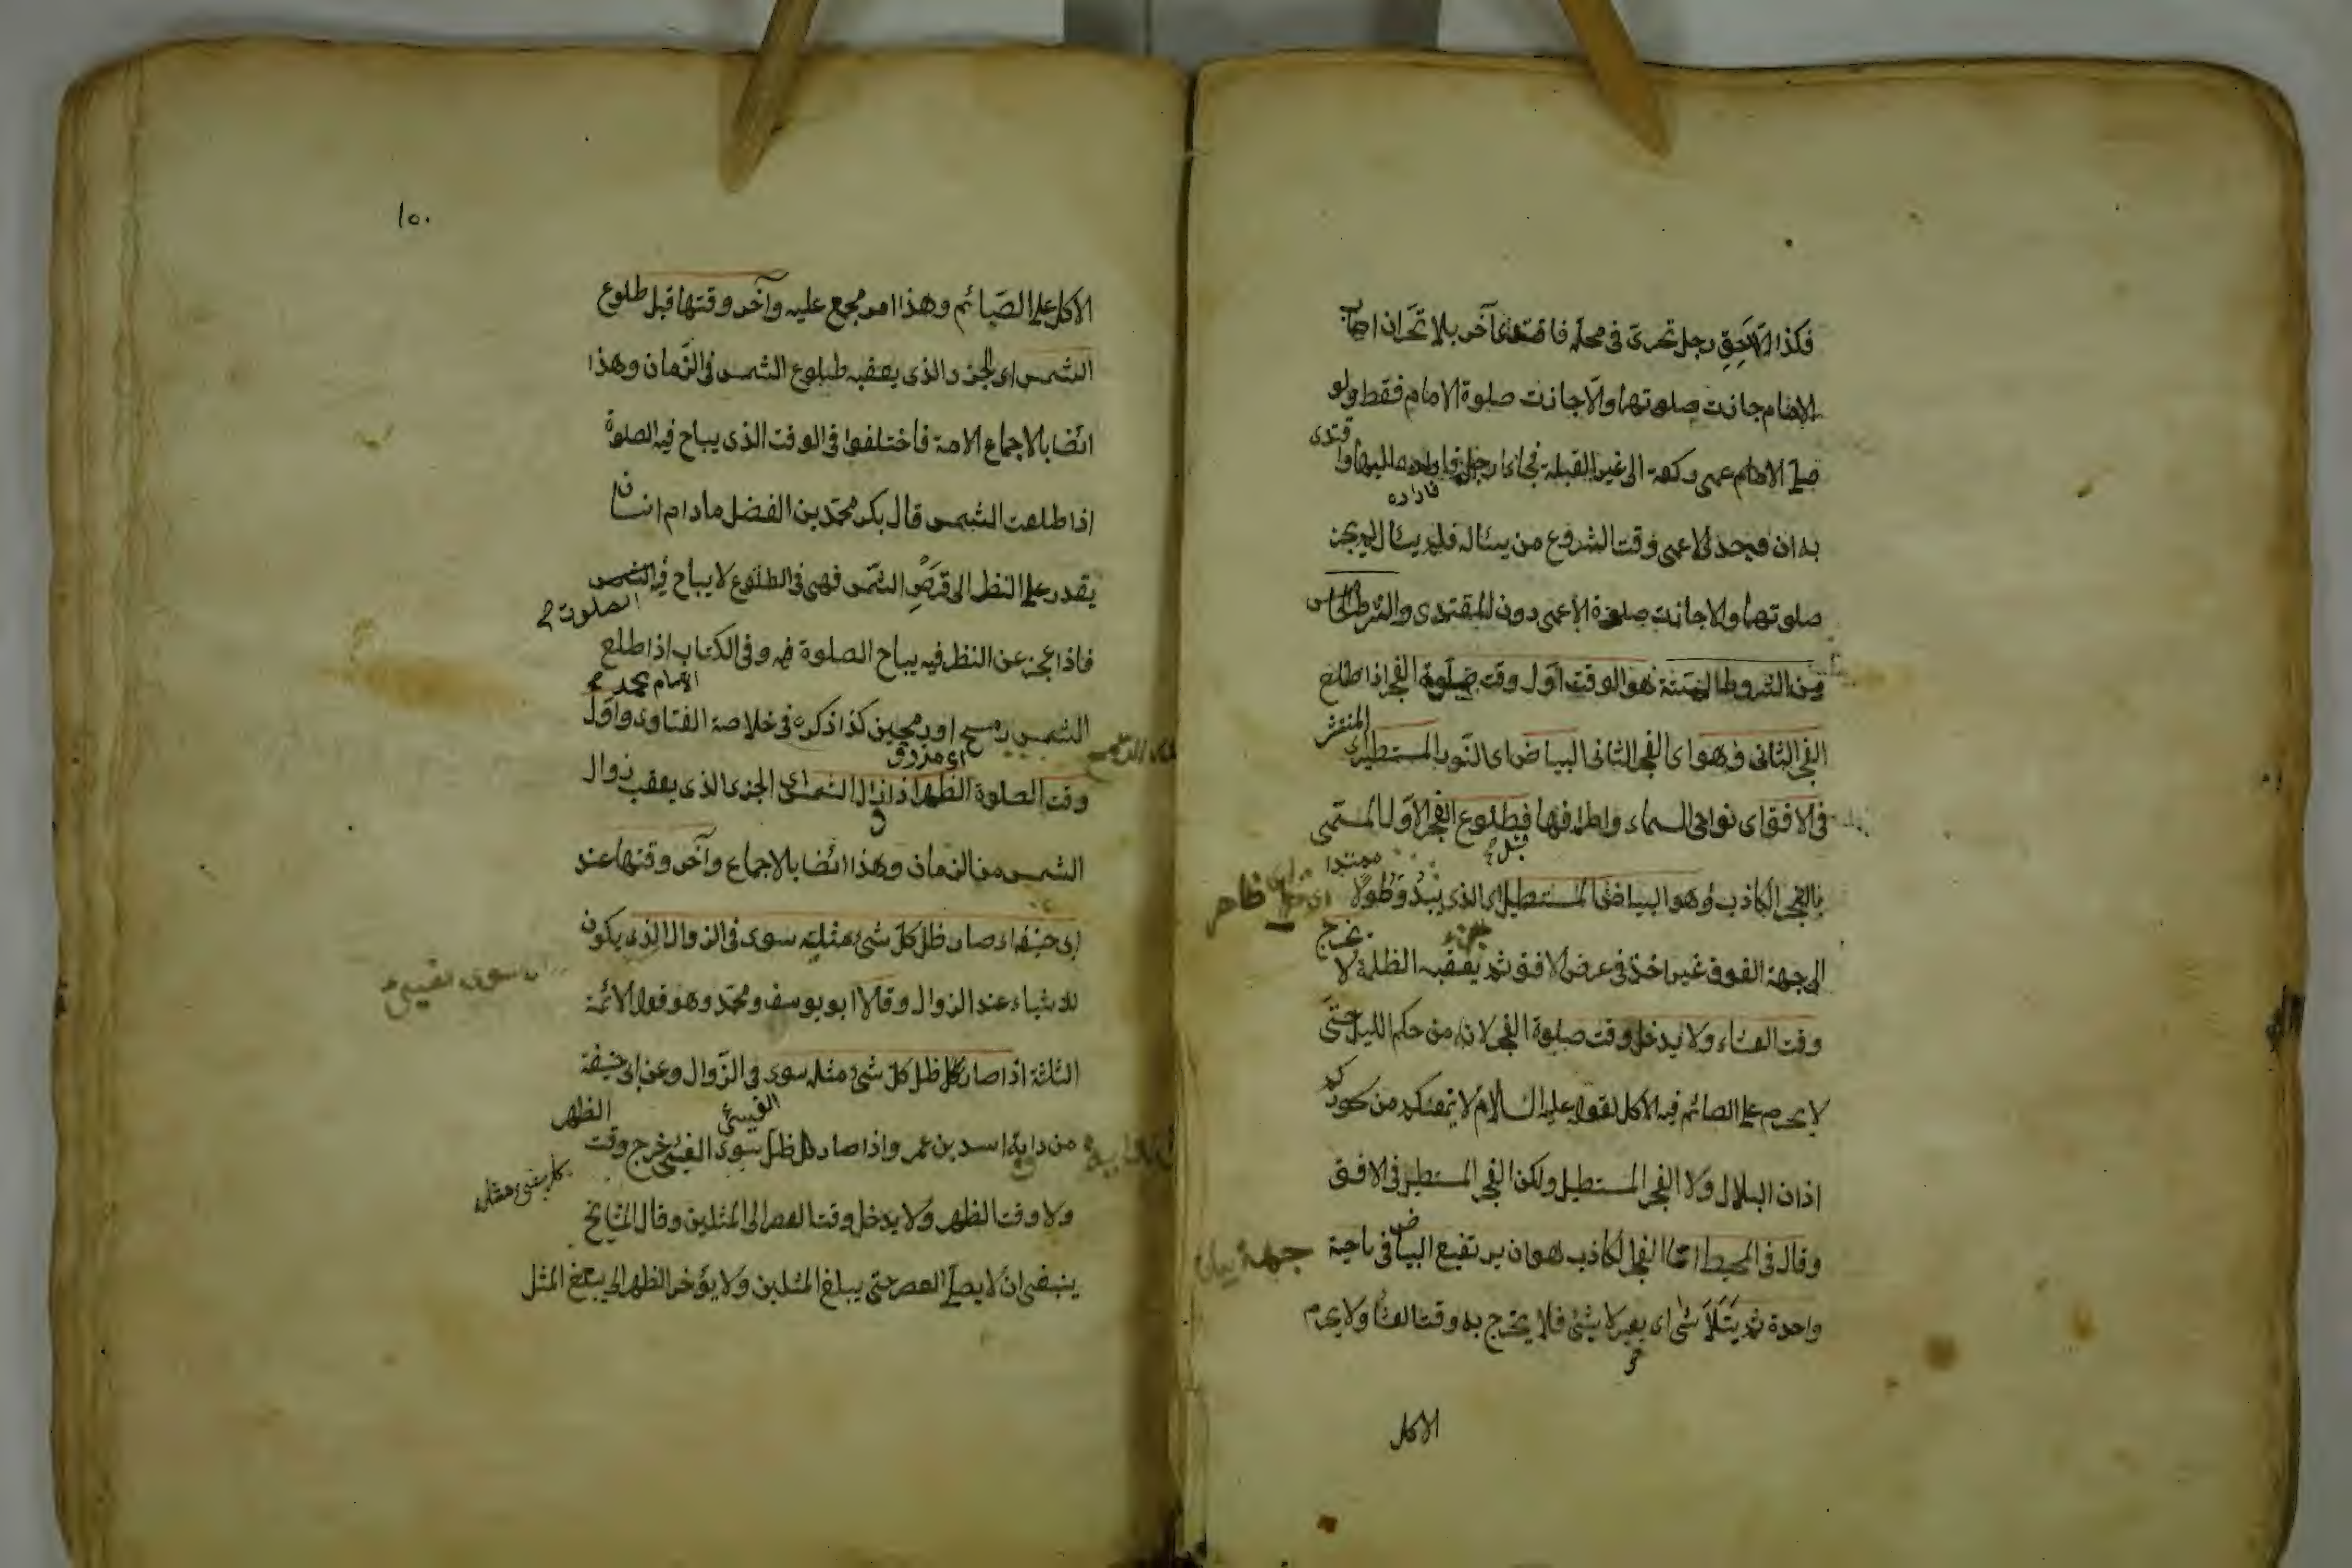 فكذا اللاحق رجل تحرى في محله فاقتدى آخر بلا تحر ان اصاب
الامام جازت صلوتهما والا جازت صلوة الامام فقط ولو
صلى الامام عمى ركعة الى غير القبلة فجاء رجل اليها واقتدى
به ان وجد الاعمى وقت الشروع من يسئاله فلم يسئال لم يجز
صلوتهما والا جازت صلوة الاعمى دون المقتدى والشرط الخامس
من الشروط الستة هو الوقت اول وقت صلوة الفجر اذا طلع
الفجر الثانى وهو اى الفجر الثانى البياض اى النور المستطير
المنتشر
فى الافق اى نواحى السماء واطرافها فبطلوع الفجر الاول المسمى
بالفجر الكاذب وهو البياض المستطيل اى الذى يبدو طولا
ممتدا
ظاهر
الى جهة الفوق غير اخذ فى عرض الافق ثم يعقبه الظلمة لا
يخرج
وقت العشاء ولا يدخل وقت صلوة الفجر لانه من حكم الليل حتى
لا يحرم على الصائم فيه الاكل لقوله عليه السلام لا يمنعنكم من سحوركم
اذان البلال ولا الفجر المستطيل ولكن الفجر المستطير فى الافق
وقال فى المحيط اما الفجر الكاذب هو ان يرتفع البياض فى ناحية
جهة بيان
واحدة ثم يتلاشى اى يصير لا شئ فلا يخرج به وقت العشا ولا يحرم
الاكل
١٥٠
الاكل على الصائم وهذا امر مجمع عليه وآخر وقتها قبل طلوع
الشمس اى الجزء الذى يعقبه طلوع الشمس فى الزمان وهذا
ائضا بالاجماع الامة فاختلفوا فى الوقت الذى يباح فيه الصلوة
اذا طلعت الشمس قال بكر محمد بن الفضل مادام انسان
يقدر على النظر الى قرص الشمس فهى فى الطلوع لا يباح فيه الشمس
الصلوة
فاذا عجز عن النظر فيه يباح الصلوة فيه وفى الكتاب اذا طلع
الامام محمد
الشمس رمح او رمحين كذا ذكره فى خلاصة الفتاوى واول
وقت الصلوة الظهر اذا زال الشمس اى الجزء الذى يعقب زوال
الشمس من الزمان وهذا ائضا بالاجماع وآخر وقتها عند
ابى حنيفة اذ صار ظل كل شئ مثليه سوى فى الزوال الذى يكون
للاشياء عند الزوال وقالا ابو يوسف ومحمد وهو قول الائمة
الثلثة اذا صار ظل كل شئ مثله سوى فى الزوال وعن ابى حنيفة
من رواية اسد بن عمر واذا صار كل ظل سوى الفئ خرج وقت
الظهر
ولا وقت الظهر ولا يدخل وقت العصر الى المثلين وقال المشايخ
ينبغى ان لا يصلى العصر حتى يبلغ المثلين ولا يؤخر الظهر الى يبلغ المثل